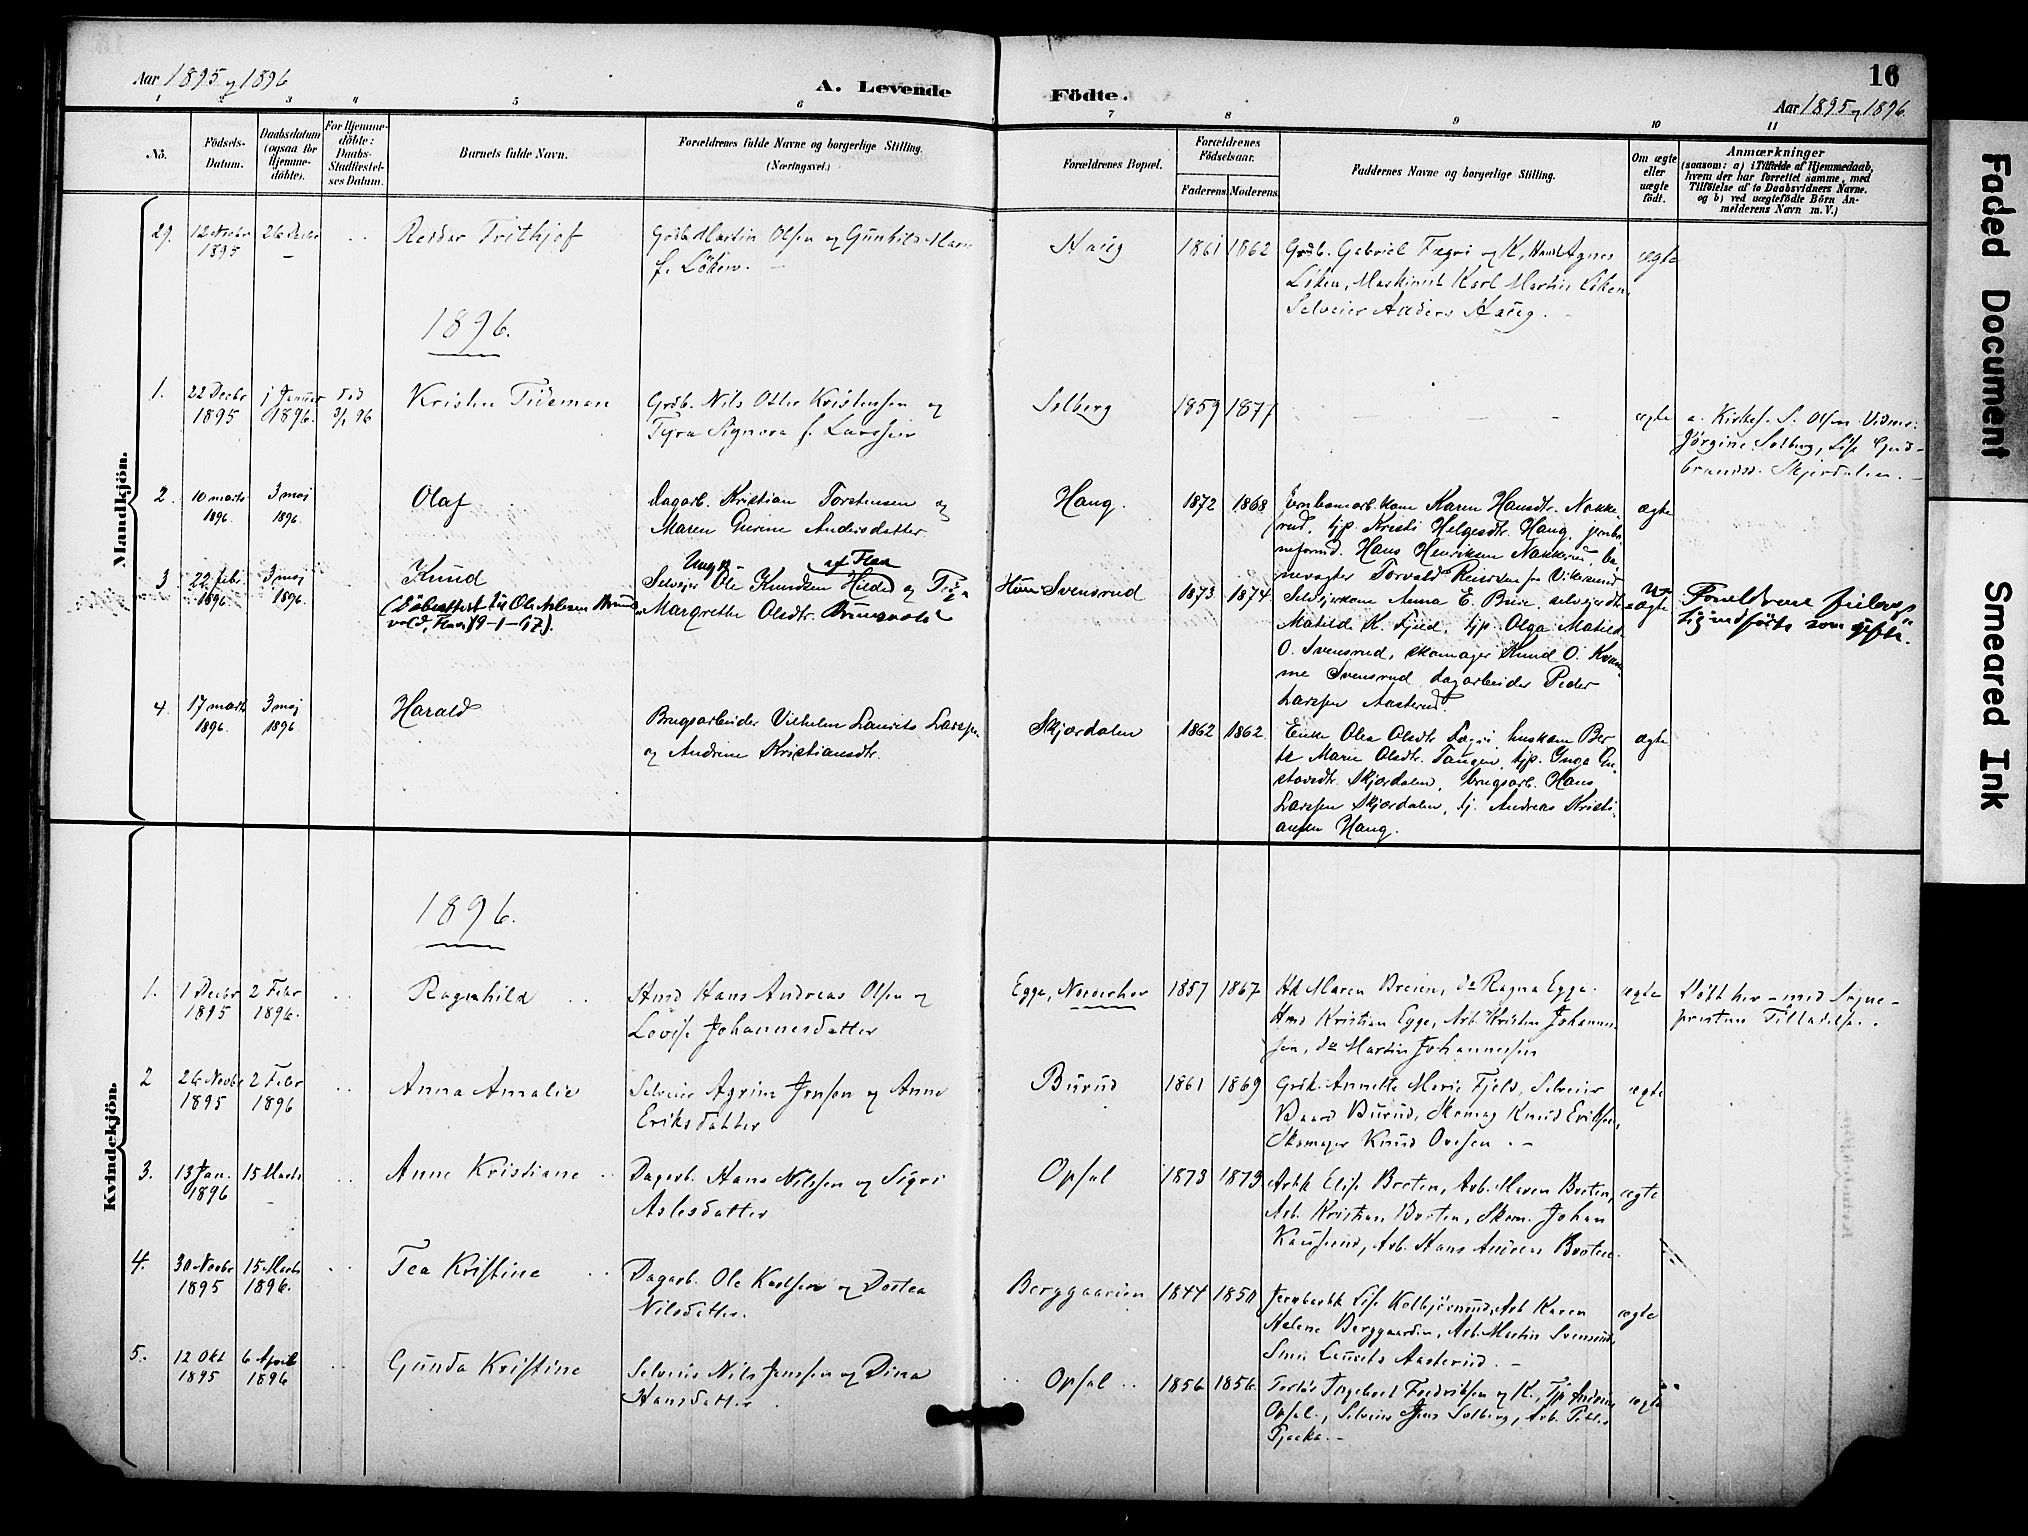 Aar 1895 og 1896
A. Levende Födte.
16
Aar 1895 og 1896
1 2 3 4 5 6 7 8 9 10 11
No.
Födsels-
Datum.
Daabsdatum
(ogsaa for
Hjemme-
döbte).
For Hjemme-
döbte:
Daabs-
Stadfæstel-
ses Datum.
Barnets fulde Navn.
Forældrenes fulde Navne og borgerlige Stilling.
(Næringsvei.)
Forældrenes Bopæl.
Forældrenes
Födselsaar.
Faderens. Moderens.
Faddernes Navne og borgerlige Stilling.
Om ægte
eller
uægte
födt.
Anmærkninger
(saasom: a) i Tilfælde af Hjemmedaab,
hvem der har forrettet samme, med
Tilföielse af to Daabsvidners Navne.
og b) ved uægtefödte Börn An-
melderens Navn m. V.)
Mandkjön.
29. 12 Novbr
1895
26 Decbr
Reidar Frithjof
Martin Olsen og Gunhild
f. Löken.
Haug
1861 1862
Gabriel Fægri og K, Agnes
Löken, Maskinist Karl Martin Löken,
Selveier Anders Haug.
ægte
1896.
1. 22 Decbr
1895
1 Januar
1896.
död
9/1 96
Kristen Tideman
Grdb. Nils Otter Kristensen og
Tyra Signora f. Larssen
Solberg
1859 1877
ægte
a. Kirkes. S. Olsen
Jörgine Solberg, Lise Gud-
brandsd. Skjerdalen.
2. 10 marts
1896.
3 maj
1896.
Olaf
Dagarb. Kristian Torstensen og
Maren Gurine Andersdatter.
Haug.
1872 1868
Jernbanearb. kone Karen Hansdtr. Nakke-
rud, tjp. Kristi Helgesdtr. Haug, jernba-
neformd. Hans Henriksen Nakkerud, ba-
nevogter Torvald Reiersen fra Vikersund
ægte
3 22 febr.
1896
3 maj
1896.
Knud
(Döbeattest til Ole Olesen Bruns-
vold, Flaa 19-1-17).
Ungk. af Flaa
Selvejer Ole Knudsen Hilde og Pige
Margrethe Olsdtr. Brunsvold
Svensrud
1873 1874
Selvejerkone Anna E. Bure, selvejerdtr.
Matilde K. Fjeld, tjp. Olga Matilde
O. Svensrud, skomager Knud O. Kvam-
me Svensrud, dagarbeider Peder
Larssen Aasterud.
U-
ægte
Forældrene
som gifte.
4. 17 marts
1896.
3 maj
1896
Harald
Brugsarbeider Vilhelm Laurits Larssen
og Andrine Kristiansdtr.
Skjærdalen
1862 1862
Enke Olea Olsdtr. Fægri, huskone Ber-
te Marie Olsdtr. Tangen, tjp. Inga Gu-
stavsdtr. Skjærdalen, brugsarb. Hans
Larssen Skjærdalen, tj. Andreas Kristi-
ansen Haug.
ægte
Kvindekjön.
1896.
1. 1 Decbr
1895
2 Febr
1896.
Ragnhild
Hmd Hans Andreas Olsen og
Lovise Johannesdatter
Egge, Norderhov
1857 1867
Maren Breien, do Ragna Egge.
Hmd Kristian Egge, Arb. Kristen Johannes-
sen, do Martin Johannessen
ægte
Döbt her - med Sogne-
prestens Tilladelse.
2 26 Novbr
1895
2 Febr
1896
Anna Amalie
Selveier Agrim Jensen og Anne
Eriksdatter
Burud
1861 1869
Annette Marie Fjeld, Selveier
Baard Burud, Skomag Knud Eriksen,
Skomager Knud Ovesen.
ægte
3. 13 Jan.
1896
15 Marts
Anne Kristiane
Dagarb. Hans Nilssen og Sigri
Aslesdatter
Opsal
1873 1873
Arbk Elise Braten, Arb. Maren Braten,
Arb. Kristian Braten, Skom. Johan
Arb. Hans Andreas Braten.
ægte
4. 30 Novbr
1895
15 Marts
1896.
Tea Kristine
Dagarb. Ole Karlsen og Dortea
Nilsdatter.
Berggaarden
1844 1850
Lise Kolbjörnrud, Arb Karen
Helene Berggaarden, Arb. Martin Svensrud,
Smed Laurits Aasterud.
ægte
5. 12 Okt
1895
6 April
1896
Gunda Kristine
Selveier Nils Jenssen og Dina
Hansdatter
Opsal
1856 1856.
Ingeborg Fredriksen og K, Tjp Andrine
Opsal, Selveier Jens Solberg, Arb. Peder
Fjeska.
ægte
Faded Document
Smeared Ink